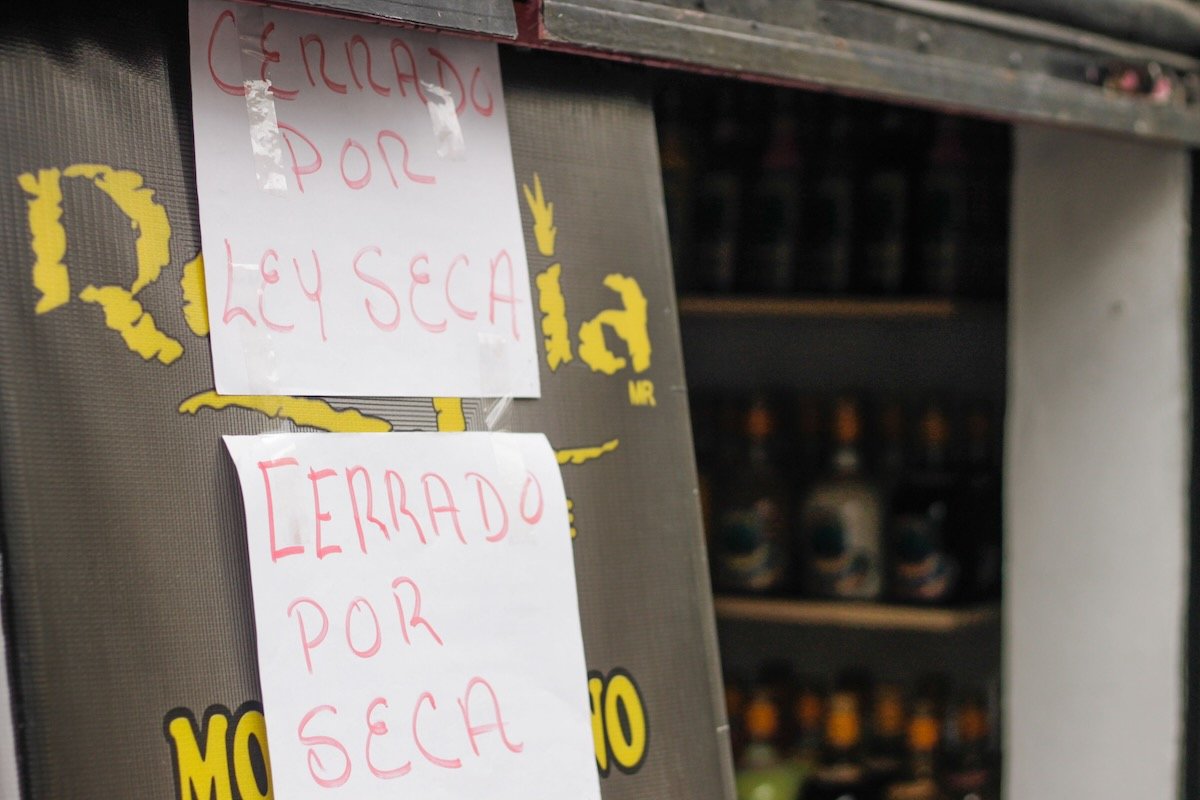 CERRADO
POR
LEY SECA
MR
CERRADO
POR
SECA